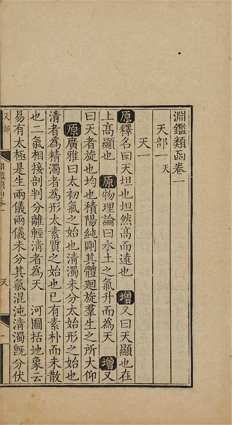 淵鑑類函卷一
天部一 天
天一
原釋名曰天坦也坦然高而遠也 增又曰天顯也在
上高顯也 原物理論曰水土之氣升而為天 增又
曰天者旋也均也積陽純剛其體迴旋羣生之所大仰
原廣雅曰太初氣之始也清濁未分太始形之始也
清者為精濁者為形太素質之始也已有素朴而未散
也二氣相接剖判分離輕清者為天 河圖括地象云
易有太極是生兩儀兩儀未分其氣混沌清濁既分伏
天部
天